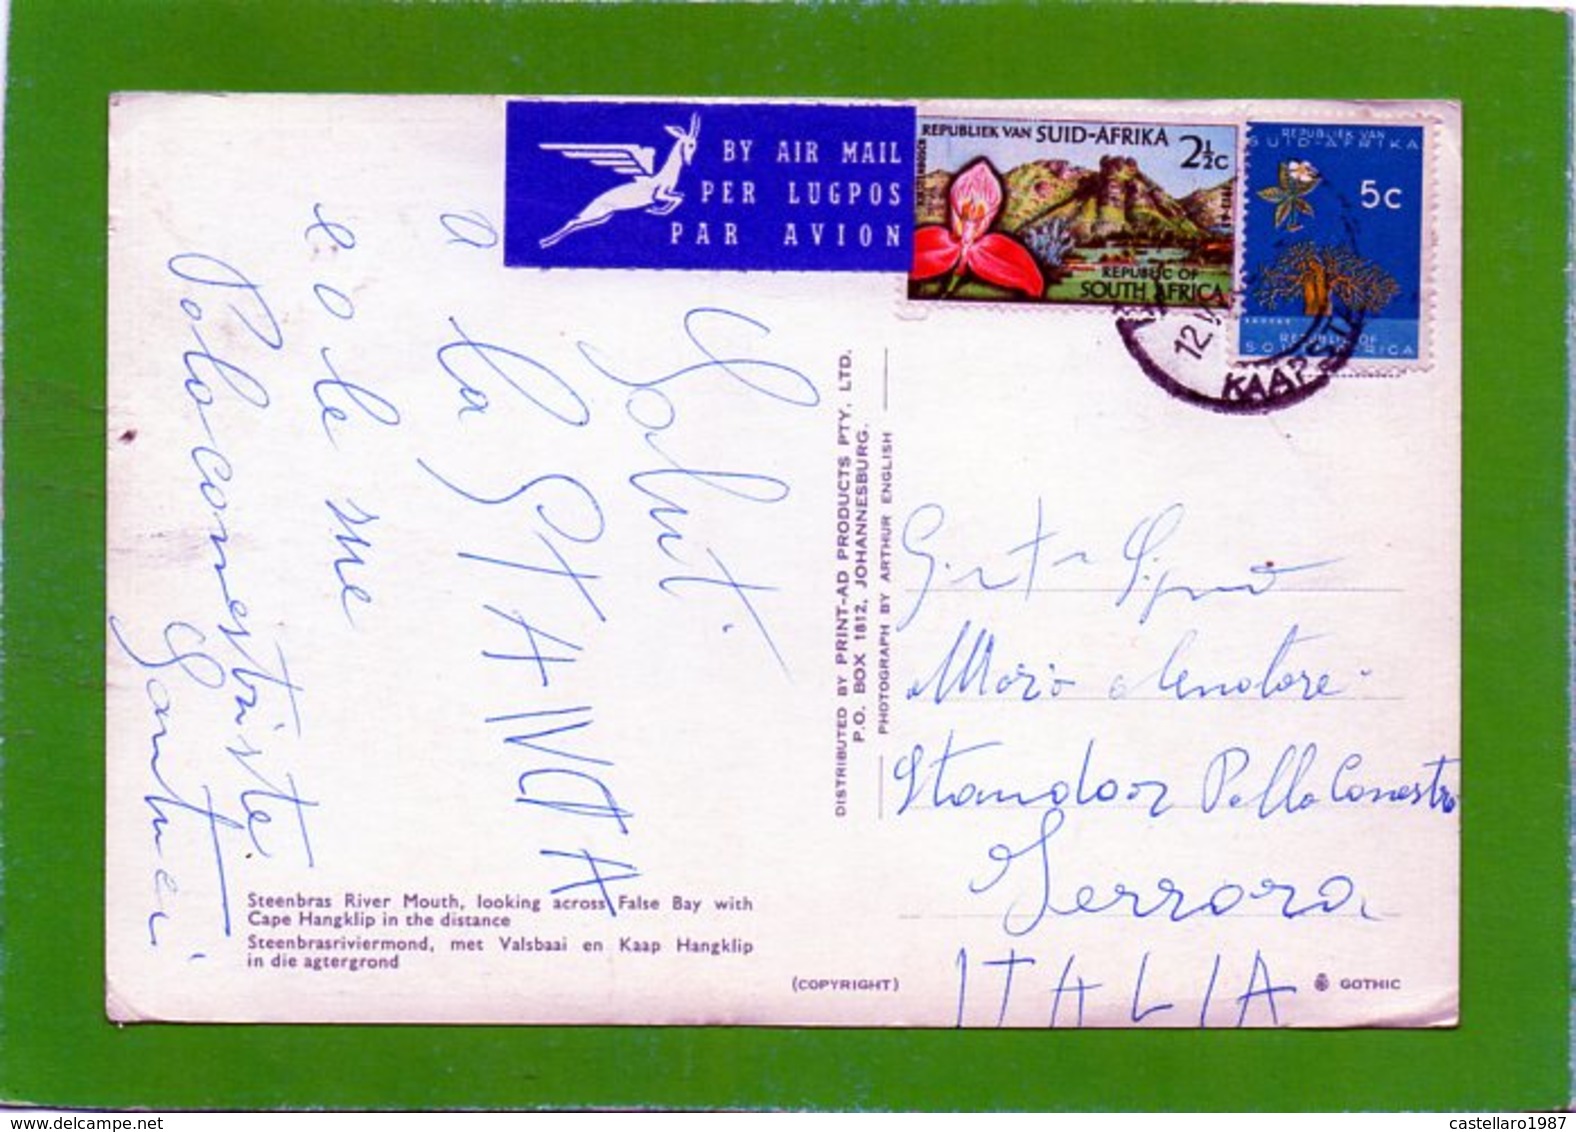 BY AIR MAIL
PER LUGPOS
PAR AVION
REPUBLIEK VAN SUID-AFRIKA
2½c
KIRSTENBOSCH
1913-63
REPUBLIC OF
SOUTH AFRICA
REPUBLIEK VAN
SUID-AFRIKA
5c
REPUBLIC OF
SOUTH AFRICA
12
KAAPSTA
Salut
a la STAVCA
e o le me
Polaconestriste
DISTRIBUTED BY PRINT-AD PRODUCTS PTY. LTD.
P.O. BOX 1812, JOHANNESBURG.
PHOTOGRAPH BY ARTHUR ENGLISH
Mario
Standoor Palla Canestro
Ferrara
ITALIA
Steenbras River Mouth, looking across False Bay with
Cape Hangklip in the distance
Steenbrasriviermond, met Valsbaai en Kaap Hangklip
in die agtergrond
(COPYRIGHT)
GOTHIC
castellaro1987